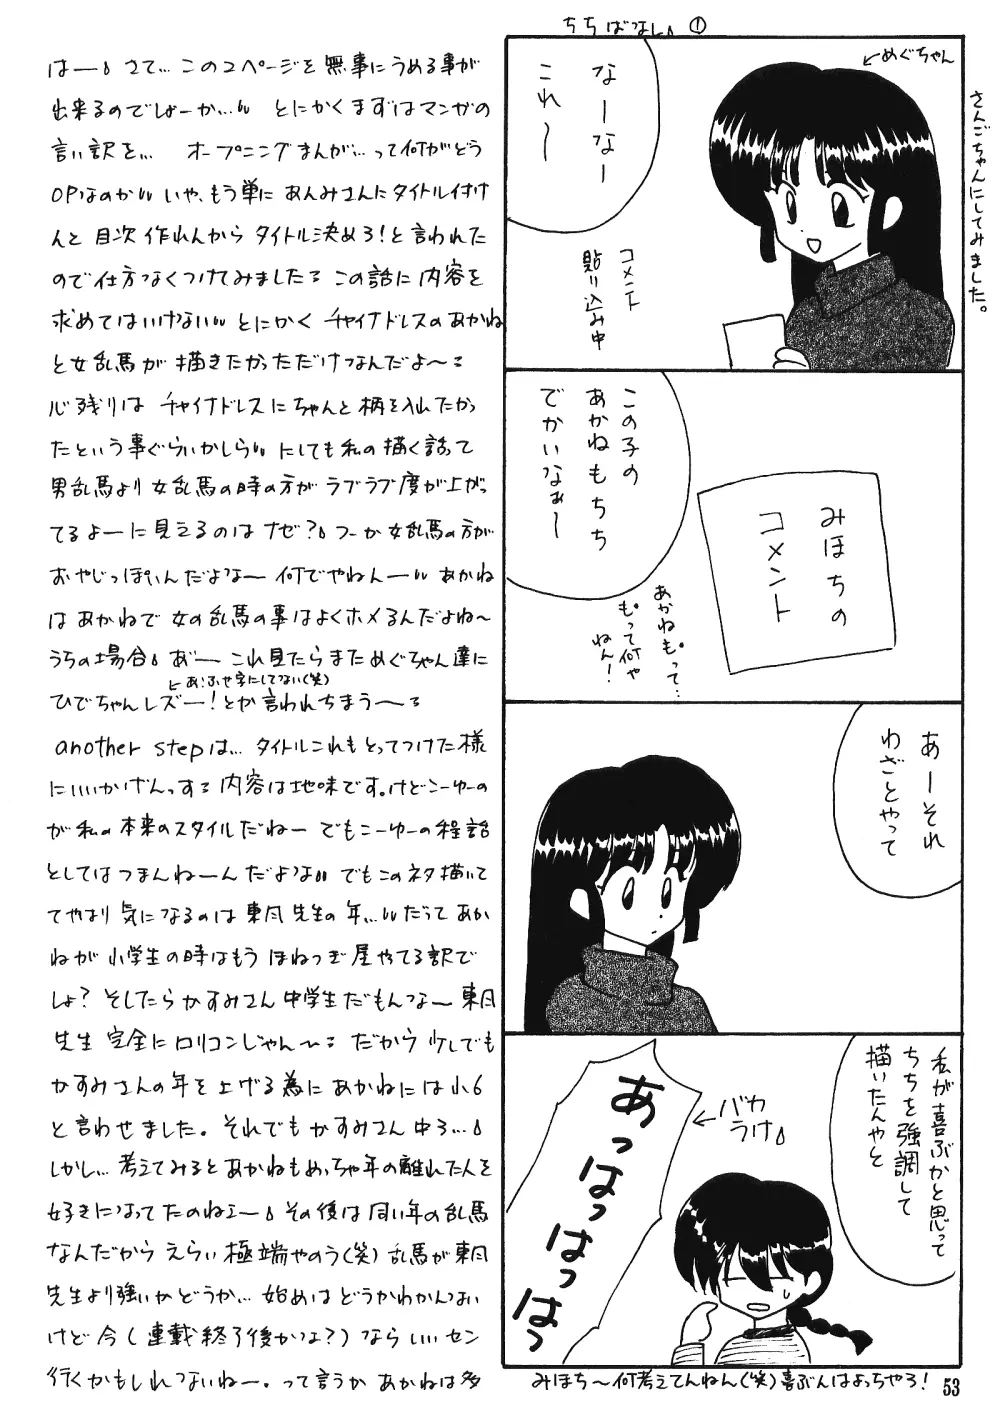 ちちばなし ①
はーさて…このスペースを無事にうめる事が
出来るのでしょーか… とにかくまずはマンガの
言い訳を… オープニングまんが…って何がどう
OPなのか いや、もう単に あんみさんにタイトル付け
んと 目次 作れんから タイトル決めろ!と言われた
ので仕方なくつけてみました この話に 内容を
求めてはいけない とにかく チャイナドレスのあかね
と女乱馬が 描きたかっただけなんだよ〜
心残りは チャイナドレスにちゃんと柄を入れたかっ
たという事ぐらいかしら にしても私の描く話って
男乱馬より 女乱馬の時の方が ラブラブ度が上がっ
てるよーに見えるのは ナゼ? つーか 女乱馬の方が
おやじっぽいんだよなー 何でやねんー あかね
はあかねで 女の乱馬の事はよくホメるんだよね〜
うちの場合 あ゛ー これ見たらまためぐちゃん達に
あ、ふせ字にしてない(笑)
ひでちゃんレズー!とか言われちまう〜
another stepは… タイトルこれもとってつけた様
にいいかげんっす 内容は地味です。けどこーゆーの
が私の本来のスタイルだねー でもこーゆーの程話
としてはつまんねーんだよな でもこのネタ描いて
てやはり気になるのは東風先生の年… だってあか
ねが小学生の時はもう ほねつぎ屋やてる訳で
しょ? そしたらかすみさん中学生だもんなー 東風
先生 完全にロリコンじゃん〜 だから 少しでも
かすみさんの年を上げる為に あかねには小6
と言わせました。それでも かすみさん 中3…
しかし… 考えてみるとあかねもめっちゃ年の離れた人を
好きになってたのねェー その後は 同い年の乱馬
なんだから えらい 極端やのう(笑) 乱馬が東風
先生より強いかどうか… 始めはどうかわかんない
けど 今(連載終了後かな?)なら いいセン
行くかもしれないねー。って言うか あかねは多
←めぐちゃん
さんごちゃんにしてみました。
なーなー
これ〜
コメント
貼り込み中
この子の
あかねもちち
でかいなぁ〜
みほちの
コメント
あかねも゜って…
も゜って何や
ねん!
あーそれ
わざとやって
私が喜ぶかと思って
ちちを強調して
描いたんやと
←バカ
うけ
あっはっはっはっ
みほち〜何考えてんねん(笑)喜ぶんはよっちゃろ!
53